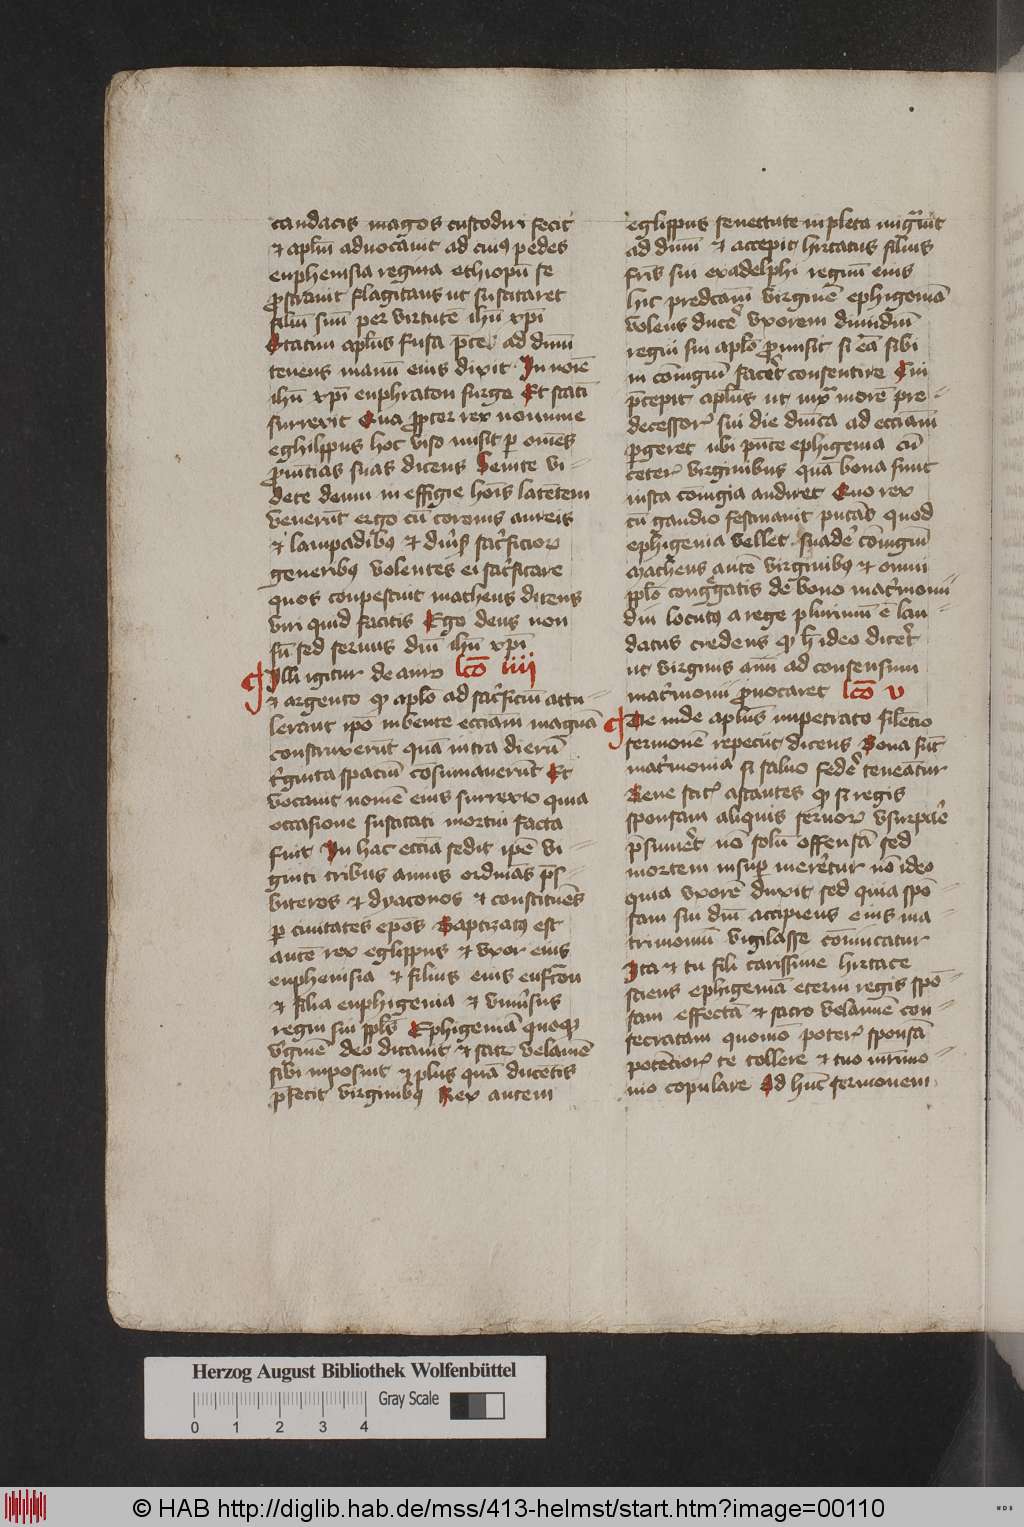 candacis magos custodiri fecit
& aplm̄ aduocauit ad cuiꝰ pedes
euphenisia regina ethiopū se
ꝓstrauit flagitans ut suscitaret
filiū suū per virtutē ihū xpī
Statim apłus fusa p̄ce ad dūm
tenens manū eius dixit In noīe
ihū xpī euphraton surge Et stati
surrexit Qua ꝓpter rex nomine
eghilppus hoc viso misit ꝑ omēs
ꝓuīcias suas dicens Venite vi-
dete deum in effigie hoīs latētem
venerūt ergo cū coronis aureis
& lampadibꝰ & diūs sacͥficioꝝ
generibꝰ volentes ei sacͥficare
quos conpescuit matheus dicens
viri quid facitis Ego deus non
sū sed seruus dm̄ ihū xpī
Illi igitur de auro lc̄o iiii
& argento qꝫ aplo ad sacͥficiū attu-
lerant ip̄o iubente eccīam magnā
construxerūt quā intra dierū
tͥginta spaciū cōsumauerūt Et
vocauit nomē eius surrexio quia
occasione suscitati mortui facta
fuit In hac eccīa sedit ip̄e vi-
ginti tribus annis ordinās p̄s-
biteros & dyaconos & constituēs
ꝑ ciuitates ep̄os Baptizatꝰ est
autē rex eglippus & vxor eius
euphenisia & filius eius eufron
& filia euphigenia & vniūsus
regni sui pplūs Ephigeniā quoqꝫ
vͥginē deo dicauit & sacͣ velamē
sibi inposuit & plus quā ducētis
p̄fecit virginibꝰ Rex autem
eglippus senectute inpleta migͣuit
ad dūm & accepit hirtacus filius
frīs sui exadelphi regnū eius
hic predcām virginē ephigeniā
volens ducͤe vxorem dimidiū
regni sui aplō ꝓmisit si eā sibi
in cōiugiū facͤet consentire Cui
p̄cepit apłus ut iuxͣ morē pre-
decessoꝝ sui die dnīca ad eccīam
ꝑgeret ubi pn̄te ephigenia cū
ceteꝝ virginibus quā bona sunt
iusta cōiugia audiret Quo rex
cū gaudio festinauit putās quod
ephigenia vellet suadeͤ cōiugiū
Matheus autē virginibꝰ & omni
pplō congͤgatis de bono matͥmonii
diu locutꝰ a rege plurimū ē lau-
datus credens qꝫ ideo diceͤt
ut virginis aīm ad consensum
matͥmonii ꝓuocaret lc̄o v
De inde apłus impetrato silētio
sermonē repeciit dicens Bona sūt
matͥmonia si saluo federͤ teneātur
Bene scitꝭ astantes qꝫ si regis
sponsam aliquis seruoꝝ vsurpareͤ
p̄sumeͤt nō solū offensā sed
mortem insuꝑ mereͤtur nō ideo
quia vxorē duxit sed quia spō-
sam sui dm̄ accipiens eius ma-
trimoniū vigilasse cōuincatur
Ita & tu fili carissime hirtace
sciens ephigeniā eterni regis spō-
sam effectā & sacro velamē con-
secratam quomō poteꝝ sponsā
potēcioꝝ te tollere & tuo mrīmo-
nio copulare Ad hūc sermonem
Herzog August Bibliothek Wolfenbüttel
Gray Scale
0 1 2 3 4
© HAB http://diglib.hab.de/mss/413-helmst/start.htm?image=00110